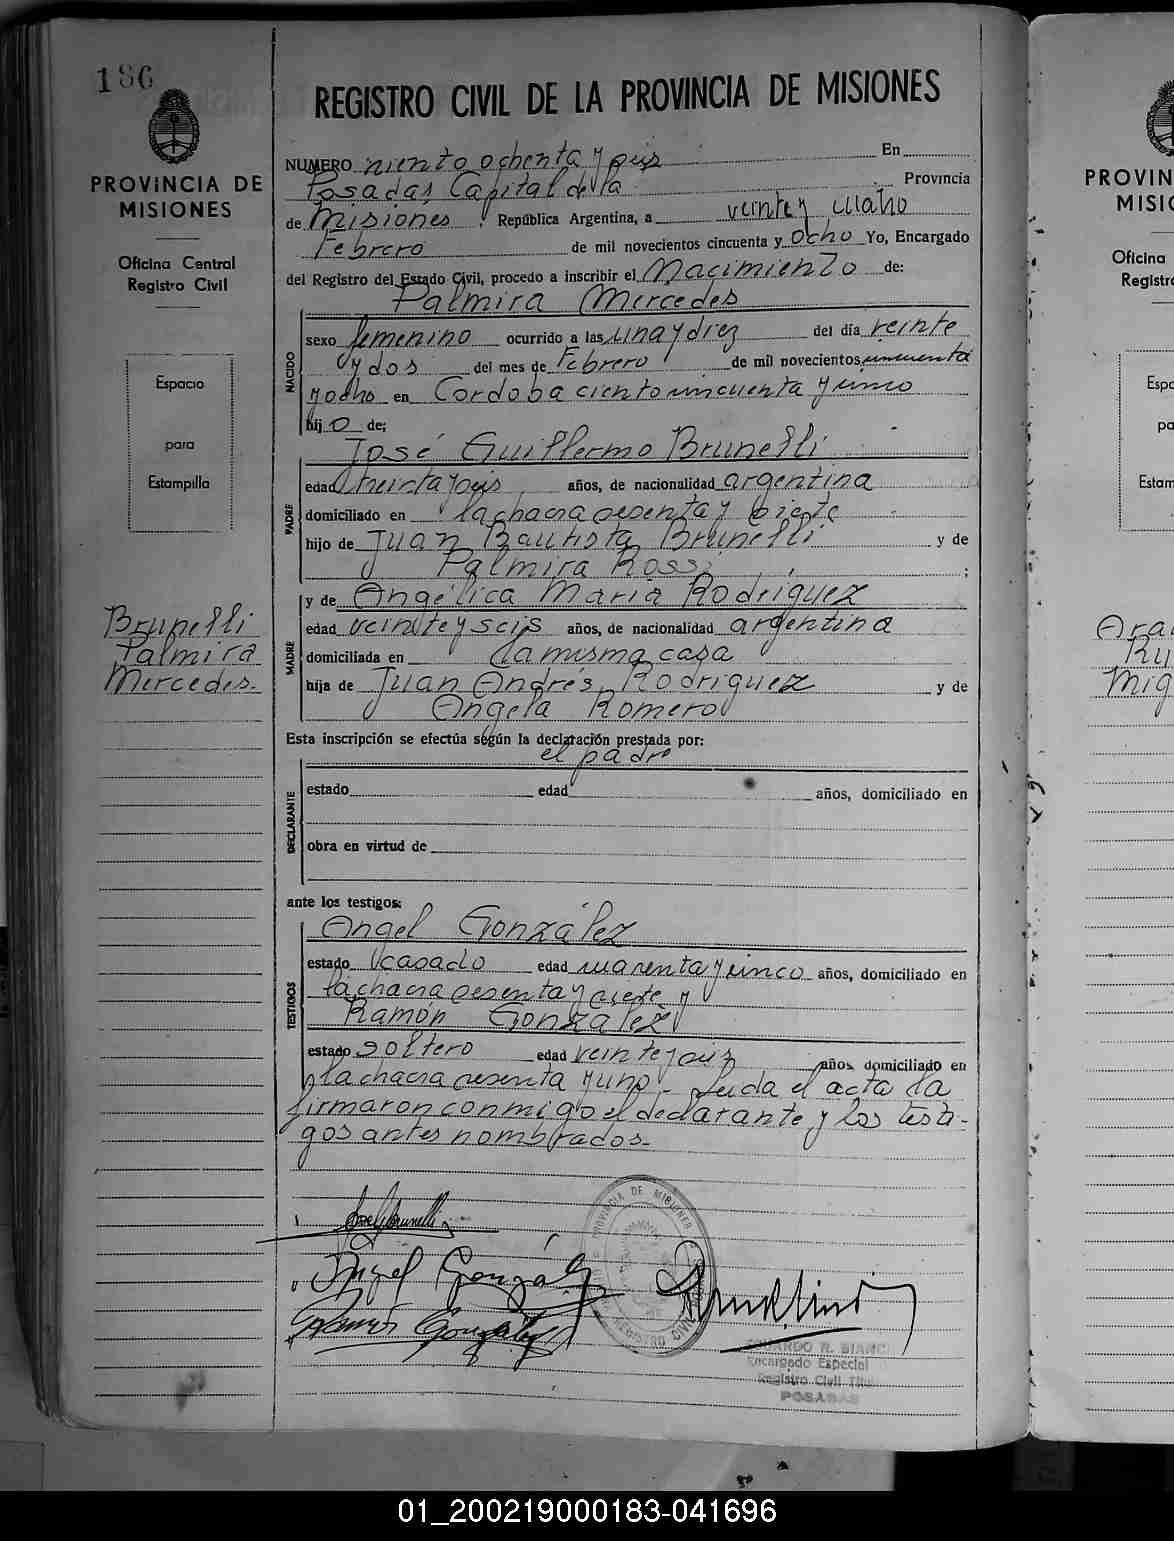 186
PROVINCIA DE
MISIONES
Oficina Central
Registro Civil
Espacio
para
Estampilla
Brunelli
Palmira
Mercedes.
REGISTRO CIVIL DE LA PROVINCIA DE MISIONES
NUMERO ciento ochenta y seis En
Posadas Capital de la Provincia
de Misiones República Argentina, a veinte y cuatro
Febrero de mil novecientos cincuenta y ocho Yo, Encargado
del Registro del Estado Civil, procedo a inscribir el Nacimiento de:
Palmira Mercedes
NACIDO
sexo femenino ocurrido a las una y diez del día veinte
y dos del mes de Febrero de mil novecientos cincuenta
y ocho en Cordoba ciento cincuenta y cinco
hijo de;
José Guillermo Brunelli
PADRE
edad treinta y seis años, de nacionalidad argentina
domiciliado en la chacra sesenta y siete
hijo de Juan Bautista Brunelli y de
Palmira Rossi ;
y de Angélica Maria Rodriguez
MADRE
edad veinte y seis años, de nacionalidad argentina
domiciliada en la misma casa
hija de Juan Andrés Rodriguez y de
Angela Romero
Esta inscripción se efectúa según la declaración prestada por:
el padre
DECLARANTE
estado edad años, domiciliado en
obra en virtud de
ante los testigos:
Angel González
TESTIGOS
estado casado edad cuarenta y cinco años, domiciliado en
la chacra sesenta y siete y
Ramón González
estado soltero edad veinte y seis años domiciliado en
la chacra sesenta y uno - Leida el acta la
firmaron conmigo el declarante y los testi-
gos antes nombrados.
Jose G Brunelli
Angel González
Ramón González
PROVINCIA DE MISIONES
REGISTRO CIVIL
EDUARDO R. BIANCI
Encargado Especial
Registro Civil
POSADAS
PROVIN
MISIO
Oficina
Registro
Espa
pa
Estam
Ara
Ru
Mig
01_200219000183-041696